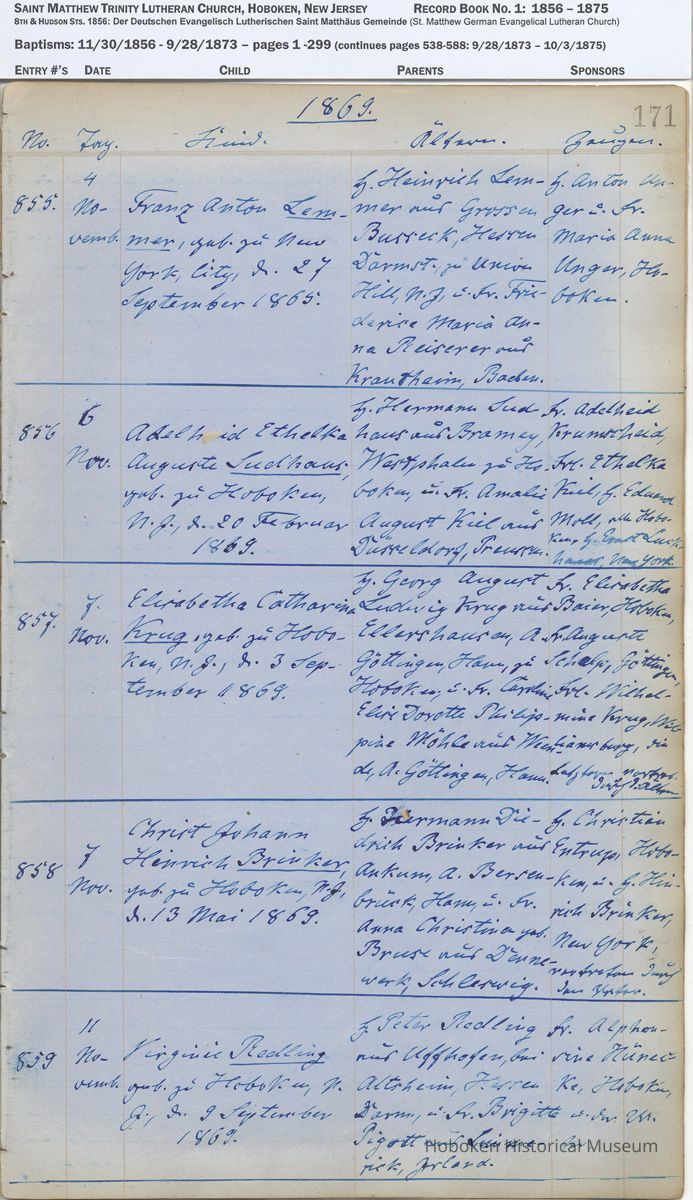 SAINT MATTHEW TRINITY LUTHERAN CHURCH, HOBOKEN, NEW JERSEY RECORD BOOK NO. 1: 1856 – 1875
8TH & HUDSON STS. 1856: Der Deutschen Evangelisch Lutherischen Saint Matthäus Gemeinde (St. Matthew German Evangelical Lutheran Church)
Baptisms: 11/30/1856 - 9/28/1873 – pages 1 -299 (continues pages 538-588: 9/28/1873 – 10/3/1875)
ENTRY #'S DATE CHILD PARENTS SPONSORS
1869.
171
No. Tag. Kind. Ältern. Zeugen.
855.
4
No-
vemb.
Franz Anton Lem-
mer, geb. zu New
York, City, d. 27
September 1865.
H. Heinrich Lem-
mer aus Grossen
Busseck, Hessen
Darmst. zu Union
Hill, N.J., u. Fr. Frie-
derice Maria An-
na Reiserer aus
Krautheim, Baden.
H. Anton Un-
ger u. Fr.
Maria Anna
Unger, Ho-
boken.
856
6
Nov.
Adelheid Ethelka
Auguste Sudhaus,
geb. zu Hoboken,
N.J., d. 20 Februar
1869.
H. Hermann Sud
haus aus Bramey,
Westphalen zu Ho-
boken, u. Fr. Amalie
August Kiel aus
Düsseldorf, Preussen.
Fr. Adelheid
Krumscheid,
Frl. Ethelka
Kiel, H. Eduard
Moll, alle Hobo-
ken, H. Ernst
haus, New York.
857.
7.
Nov.
Elisabetha Catharina
Krug, geb. zu Hobo-
ken, N.J., d. 3 Sep-
tember 1869.
H. Georg August
Ludwig Krug aus
Ellershausen, A.
Göttingen, Hann, zu
Hoboken, u. Fr. Caroline
Elise Dorette Philip-
pine Möhle aus Ween-
de, A. Göttingen, Hann.
Fr. Elisabetha
Baier, Hoboken,
Fr. Auguste
Göttingen,
Frl. Wilhel-
mine Krug, Wil-
liamsburg, die
vertret.
durch d. Ältern
858
7
Nov.
Christ Johann
Heinrich Brinker,
geb. zu Hoboken, N.J,
d. 13 Mai 1869.
H. Hermann Die-
drich Brinker aus
Ankum, A. Bersen-
brück, Hann, u. Fr.
Anna Christina geb.
Bruse aus Denne-
werk, Schleswig.
H. Christian
Entrup, Hobo-
ken, u. H. Hin-
rich Brinker,
New York,
vertreten durch
den Vater.
859
11
No-
vemb.
Virginie Redling
geb. zu Hoboken, N.
J., d. 9 September
1869.
H. Peter Redling
aus Uffhofen, bei
Altsheim, Hessen
Darm, u. Fr. Brigitte
Pigott aus Lime-
rick, Irland.
Fr. Alphon-
sine Hünec-
ke, Hoboken,
u. der
Hoboken Historical Museum